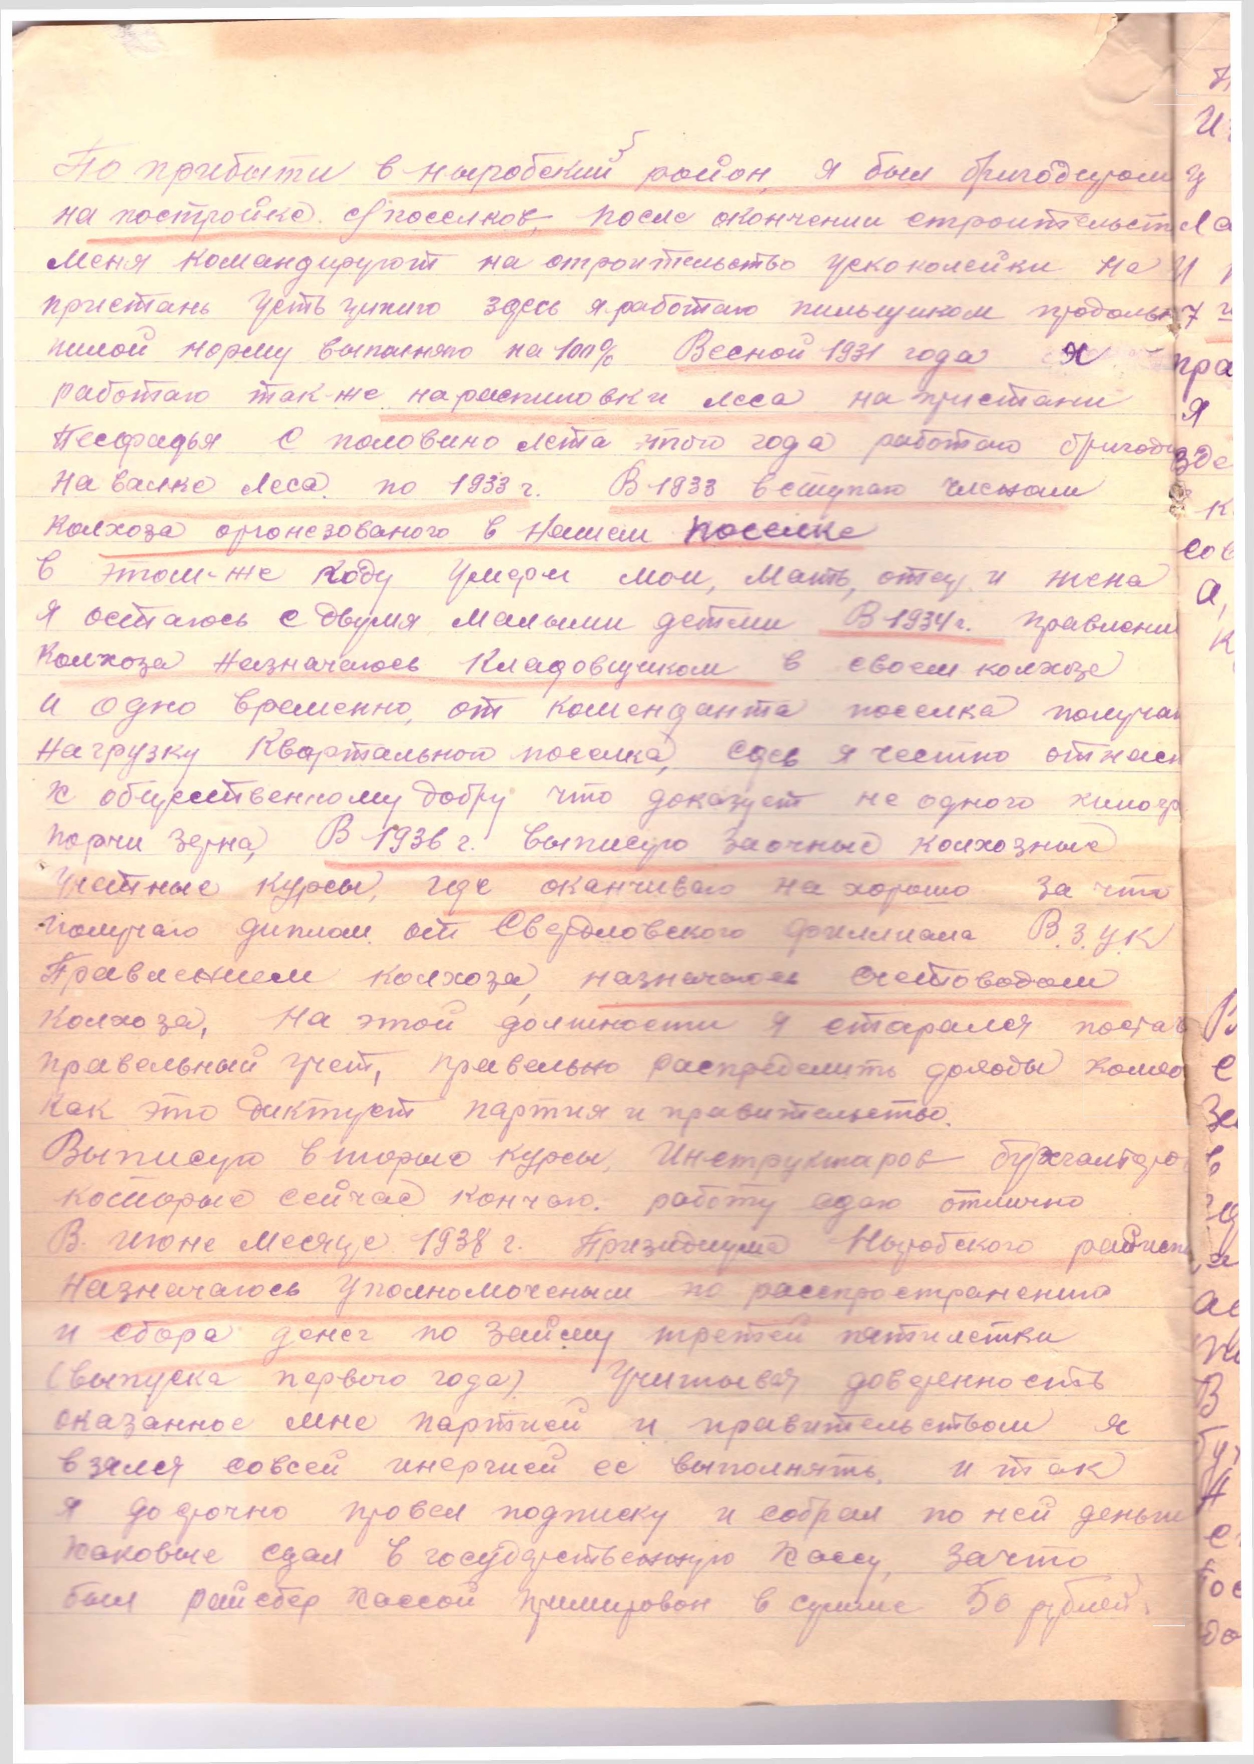 По прибыти в ныробский район, я был бригодиром
на постройке с/поселков, после окончении строительст
меня командируют на строительство ускоколейки на
пристань Усть
здесь я работаю пильщиком продольн
пилой норму выполняю на 100% Весной 1931 года я
работаю так-же на распиловки леса на пристани
с половино лета этого года работаю бригоди
на валке леса по 1933 г. В 1933 вступаю членом
колхоза оргонезованого в нашем поселке
в этом-же году умерли мои, мать, отец и жена
я остаюсь с двумя малыми детми В 1934 г. правлени
колхоза назначаюсь кладовщиком в своем колхозе
и одно временно, от коменданта поселка получаю
нагрузку квартального поселка, сдесь я честно отнаси
к общественному добру что доказует не одного килогр
порчи зерна, В 1936 г. выписую заочные колхозные
учетные курсы, где оканчиваю на хорошо за что
получаю диплом от Свердловского филлиала В.З.У.К
Правлением колхоза, назначаюсь счетоводом
колхоза, на этой должности я старался постав
правельный учет, правельно распределить доходы колхо
как это диктует партия и правительство.
Выписую вторые курсы, Инструктаров бухгалтеро
которые сейчас кончаю. работу сдаю отлично
В июне месяце 1938 г. Призидиума Ныробского райисп
назначаюсь уполномоченым по расспространению
и сбора денег по займу третей пятилетки
(выпуска первого года). Учитывая доверенность
оказанное мне партией и правительством я
взялся совсей инергией ее выполнять. и так
я до срочно провел подписку и собрал по ней деньги
каковые сдал в государственную кассу, зачто
был райсбер кассой примирован в сумме 50 рублей.